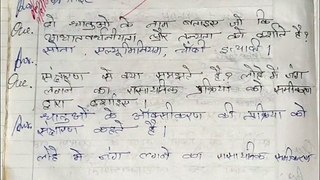 Que. दो धातुओं के नाम बताइए जो कि
आघातवर्धनीयता और तन्यता को दर्शाते हैं?
Ans. सोना एल्युमिनियम, चाँदी इत्यादि।
Que. संक्षारण से क्या समझते हैं? लोहे में जंग
लगने का रासायनिक प्रक्रिया की समीकरण
द्वारा दर्शाइए
Ans. धातुओं के ऑक्सीकरण की प्रक्रिया को
संक्षारण कहते हैं।
लोहे में जंग लगने का रासायनिक समीकरण